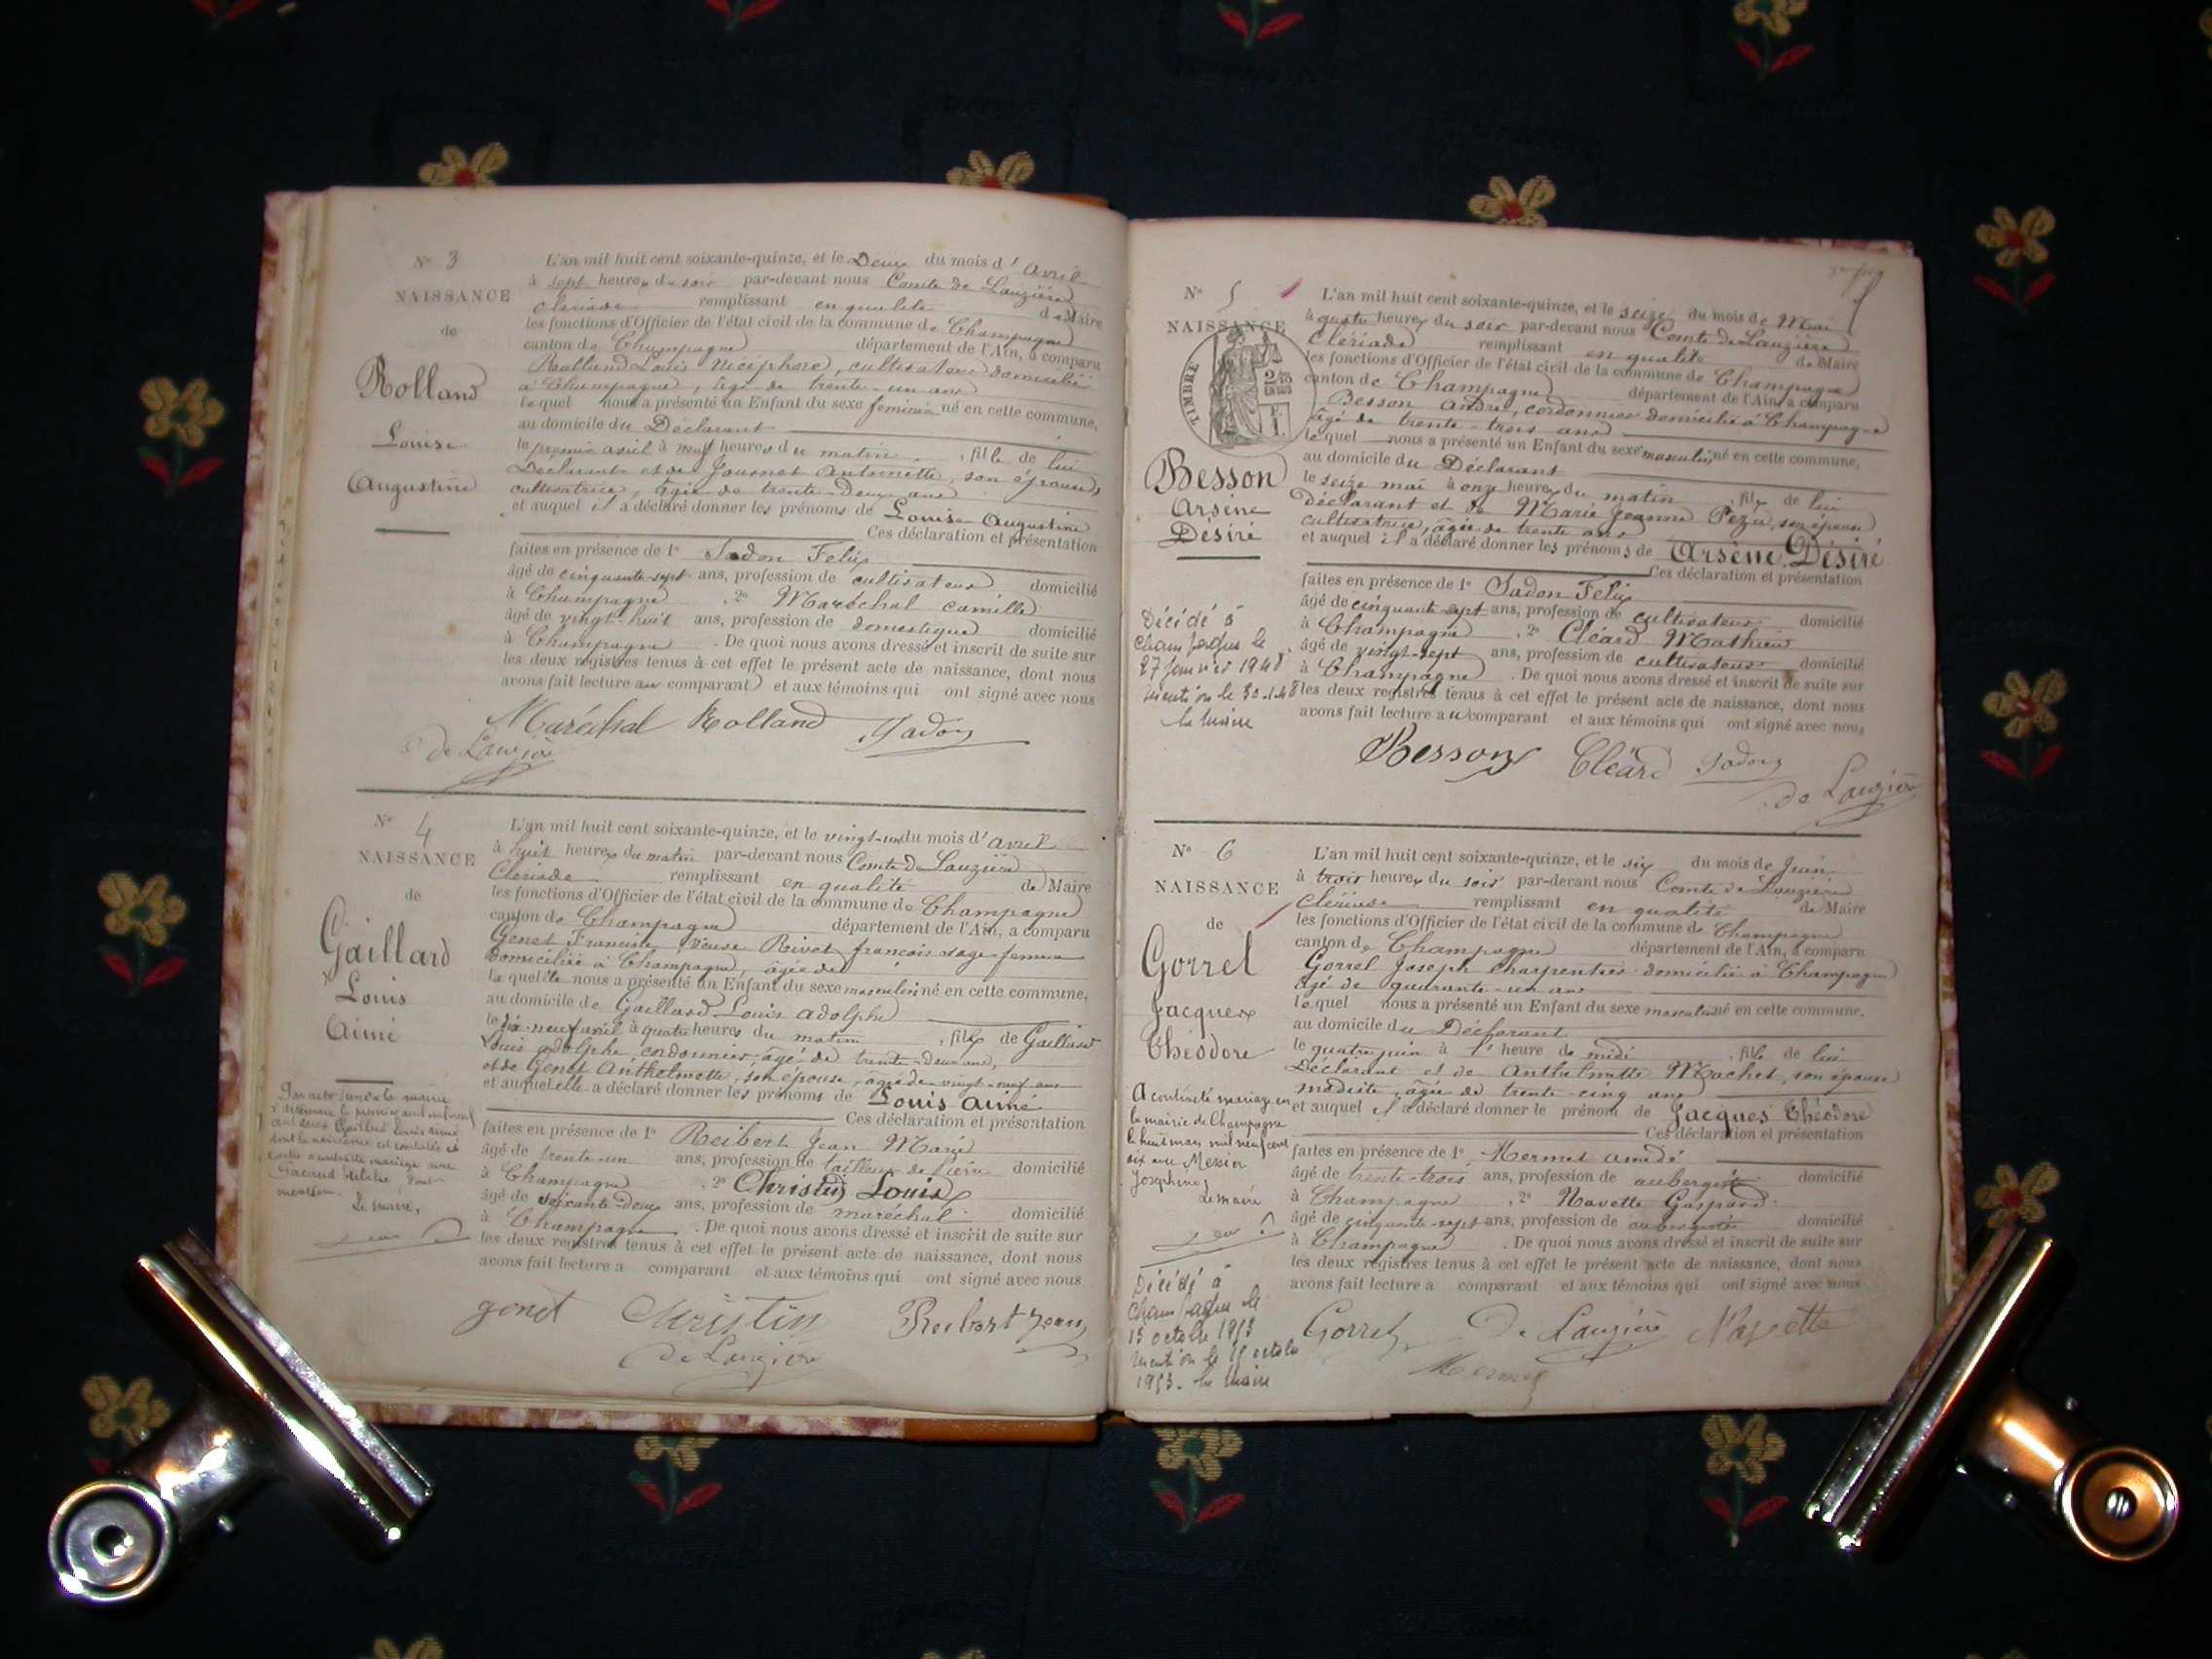 N° 3
NAISSANCE
de
Rolland
Louise
Augustine
L'an mil huit cent soixante-quinze, et le Deux du mois d'avril
à sept heures du soir par-devant nous Comte de Lauzière
Clériade remplissant en qualité de Maire
les fonctions d'Officier de l'état civil de la commune de Champagne
canton de Champagne département de l'Ain, a comparu
Rolland Louis Nicéphore, cultivateur domicilié
à Champagne, âgé de trente-un ans
lequel nous a présenté un Enfant du sexe féminin né en cette commune,
au domicile du Déclarant
le premier avril à neuf heures du matin, fille de lui
Déclarant et de Journet Antoinette, son épouse,
cultivatrice, âgée de trente-deux ans
et auquel il a déclaré donner les prénoms de Louise Augustine
Ces déclaration et présentation
faites en présence de 1° Jadon Félix
âgé de cinquante-sept ans, profession de cultivateur domicilié
à Champagne, 2° Maréchal Camille
âgé de vingt-huit ans, profession de domestique domicilié
à Champagne. De quoi nous avons dressé et inscrit de suite sur
les deux registres tenus à cet effet le présent acte de naissance, dont nous
avons fait lecture au comparant et aux témoins qui ont signé avec nous
Maréchal Rolland Jadon
de Lauzière
N° 4
NAISSANCE
de
Gaillard
Louis
Aimé
L'an mil huit cent soixante-quinze, et le vingt-un du mois d'avril
à huit heures du matin par-devant nous Comte de Lauzière
Clériade remplissant en qualité de Maire
les fonctions d'Officier de l'état civil de la commune de Champagne
canton de Champagne département de l'Ain, a comparu
Genet Françoise, veuve Rivet françois sage-femme
domiciliée à Champagne, âgée de
laquelle nous a présenté un Enfant du sexe masculin né en cette commune,
au domicile de Gaillard Louis Adolphe
le dix-neuf avril à quatre heures du matin, fils de Gaillard
Louis Adolphe, cordonnier, âgé de trente-deux ans,
et de Genet Anthelmette, son épouse, âgée de vingt-neuf ans
et auquel elle a déclaré donner les prénoms de Louis Aimé
Ces déclaration et présentation
faites en présence de 1° Reibert Jean Marie
âgé de trente-un ans, profession de tailleur de pierre domicilié
à Champagne, 2° Christin Louis
âgé de soixante-deux ans, profession de maréchal domicilié
à Champagne. De quoi nous avons dressé et inscrit de suite sur
les deux registres tenus à cet effet le présent acte de naissance, dont nous
avons fait lecture a comparant et aux témoins qui ont signé avec nous
Le maire,
genet Christin Reibert Jean
de Lauzière
N° 5
NAISSANCE
TIMBRE
Besson
Arsène
Désiré
L'an mil huit cent soixante-quinze, et le seize du mois de Mai
à quatre heures du soir par-devant nous Comte de Lauzière
Clériade remplissant en qualité de Maire
les fonctions d'Officier de l'état civil de la commune de Champagne
canton de Champagne département de l'Ain, a comparu
Besson André, cordonnier domicilié à Champagne
âgé de trente-trois ans
lequel nous a présenté un Enfant du sexe masculin né en cette commune,
au domicile du Déclarant
le seize mai à onze heures du matin, fils de lui
déclarant et de Marie Jeanne Pezu, son épouse
cultivatrice, âgée de trente ans
et auquel il a déclaré donner les prénoms de Arsène Désiré
Ces déclaration et présentation
faites en présence de 1° Jadon Félix
âgé de cinquante-sept ans, profession de cultivateur domicilié
à Champagne, 2° Cléard Mathieu
âgé de vingt-sept ans, profession de cultivateur domicilié
à Champagne. De quoi nous avons dressé et inscrit de suite sur
les deux registres tenus à cet effet le présent acte de naissance, dont nous
avons fait lecture au comparant et aux témoins qui ont signé avec nous
Décédé à
Champagne le
27 Janvier 1948
Mention le 30.1.48
le Maire
Besson Cléard Jadon
de Lauzière
N° 6
NAISSANCE
de
Gorrel
Jacques
Théodore
L'an mil huit cent soixante-quinze, et le six du mois de Juin
à trois heures du soir par-devant nous Comte de Lauzière
Clériade remplissant en qualité de Maire
les fonctions d'Officier de l'état civil de la commune de Champagne
canton de Champagne département de l'Ain, a comparu
Gorrel Joseph charpentier domicilié à Champagne
âgé de quarante-un ans
lequel nous a présenté un Enfant du sexe masculin né en cette commune,
au domicile du Déclarant
le quatre juin à l'heure de midi, fils de lui
Déclarant et de Anthelmette Machet, son épouse
modiste, âgée de trente-cinq ans
et auquel il a déclaré donner le prénom de Jacques Théodore
Ces déclaration et présentation
faites en présence de 1° Mermet Amédé
âgé de trente-trois ans, profession de aubergiste domicilié
à Champagne, 2° Navette Gaspard
âgé de cinquante-sept ans, profession de aubergiste domicilié
à Champagne. De quoi nous avons dressé et inscrit de suite sur
les deux registres tenus à cet effet le présent acte de naissance, dont nous
avons fait lecture a comparant et aux témoins qui ont signé avec nous
A contracté mariage en
la mairie de Champagne
le huit mars mil neuf cent
dix avec Messier
Joséphine
Le maire
Décédé à
Champagne le
15 octobre 1953
Mention le 15 octobre
1953. le Maire
Gorrel de Lauzière Navette
Mermet